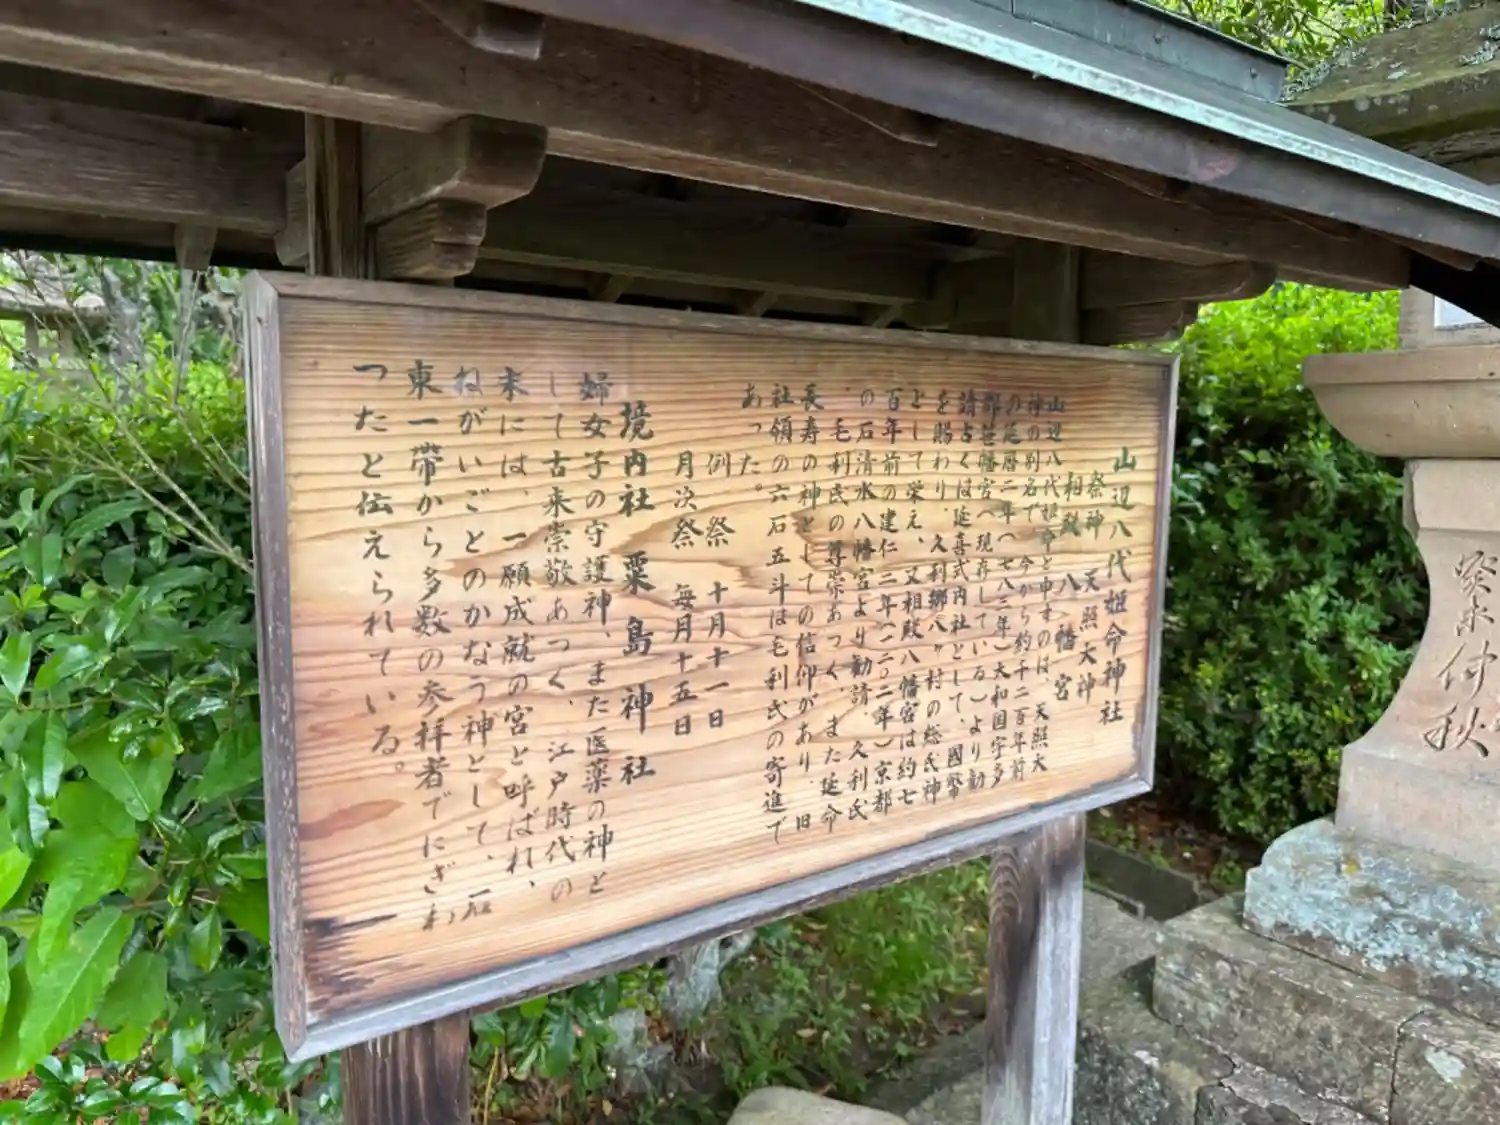 山辺八代姫命神社
祭神　天照大神
相殿　八幡宮
山辺八代姫命と申すのは、天照大
神の別名で、今から約千二百年前
の延暦二年（七八三年）大和国宇多
郡笹幡宮（現存している）より勧
請古くは延喜式内社として、國幣
を賜わり、久利郷八ヶ村の総氏神
として栄え、又相殿八幡宮は約七
百年前の建仁二年（一二〇二年）京都
の石清水八幡宮より勧請、久利氏
、毛利氏の尊崇あつく、また延命
長寿の神としての信仰があり、旧
社領の六石五斗は毛利氏の寄進で
あった。
例祭　十月十一日
月次祭　毎月十五日
境内社　粟島神社
婦女子の守護神、また医薬の神と
して古来崇敬あつく、江戸時代の
末には、一願成就の宮と呼ばれ、
ねがいごとのかなう神として、石
東一帯から多数の参拝者でにぎわ
ったと伝えられている。
癸未仲秋